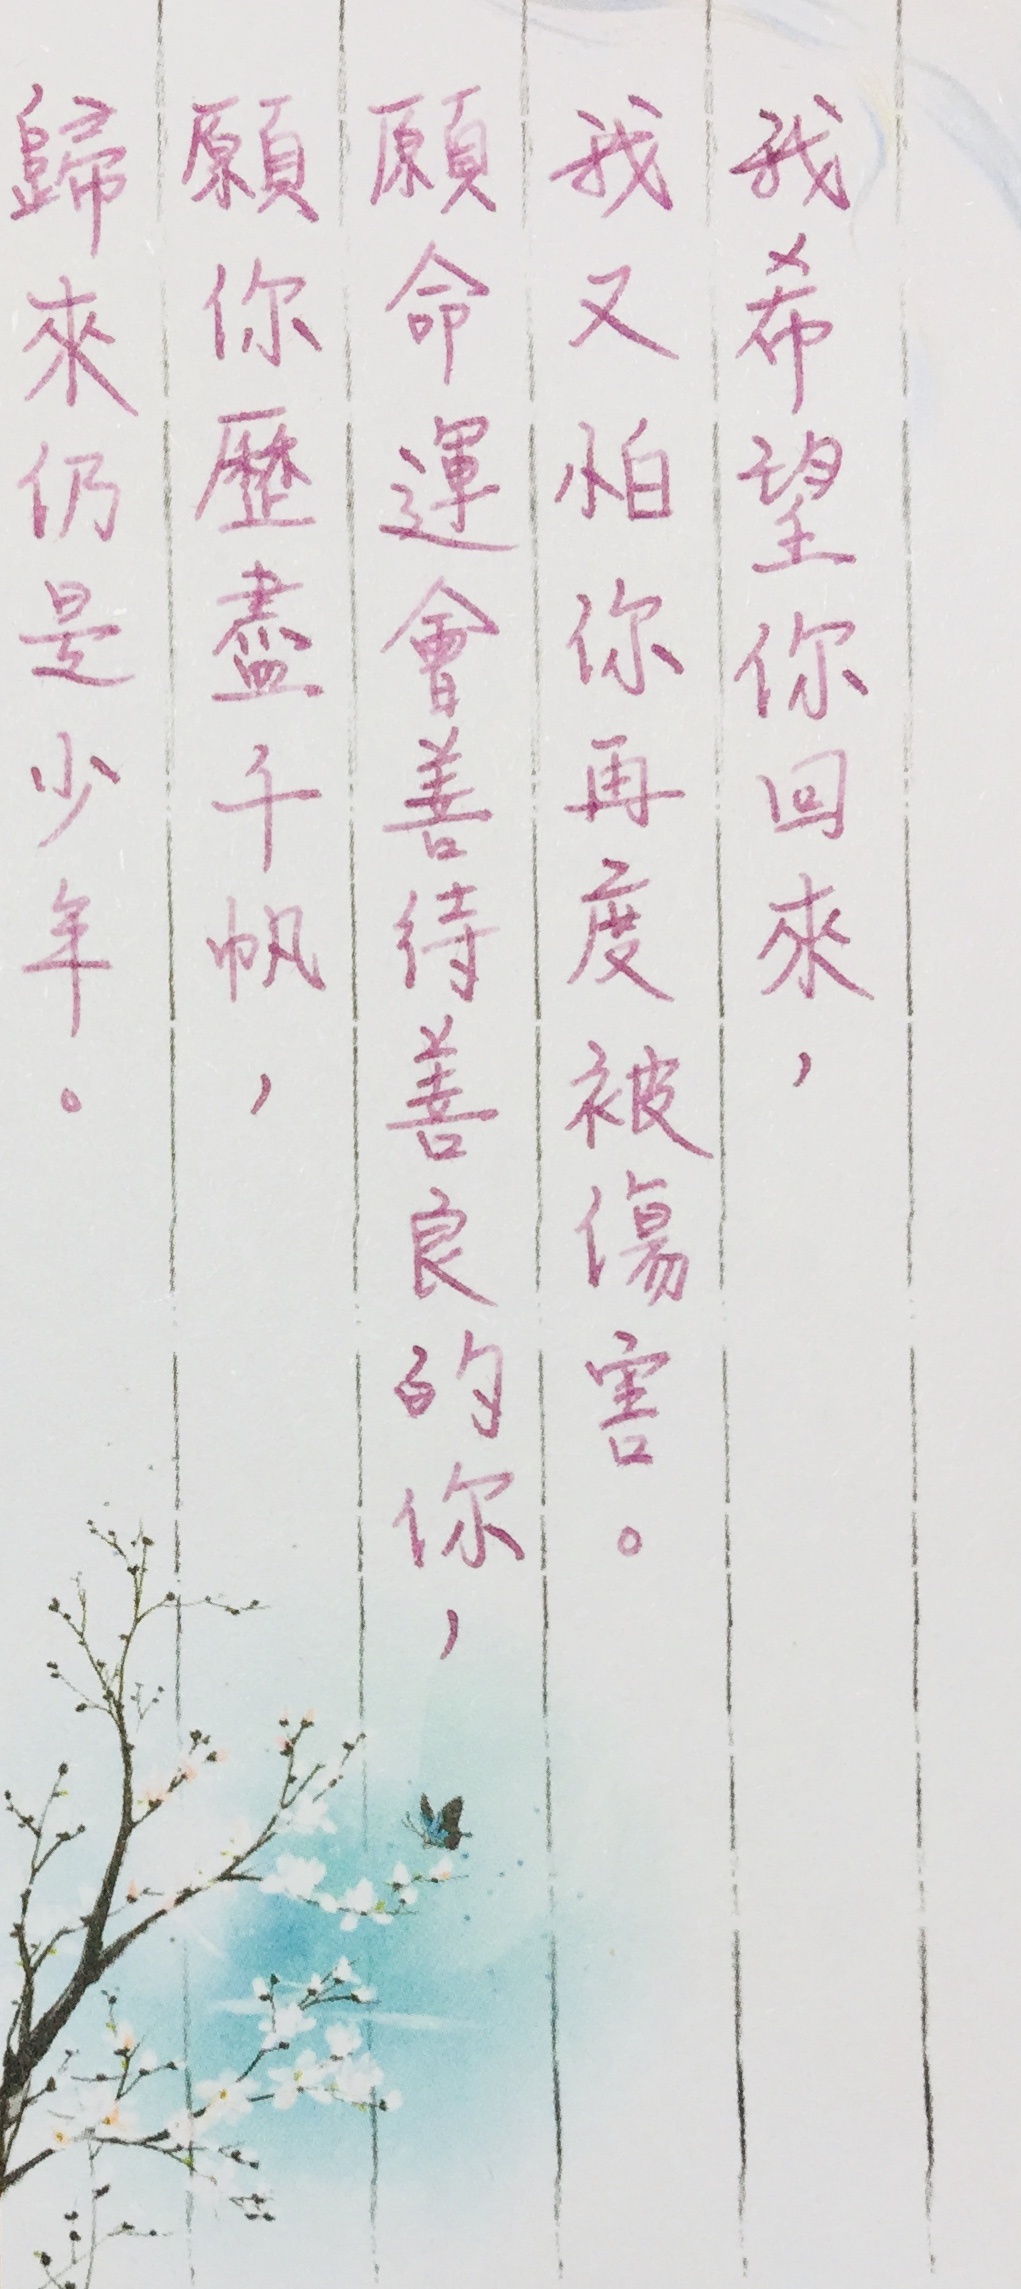 我希望你回來，
我又怕你再度被傷害。
願命運會善待善良的你，
願你歷盡千帆，
歸來仍是少年。